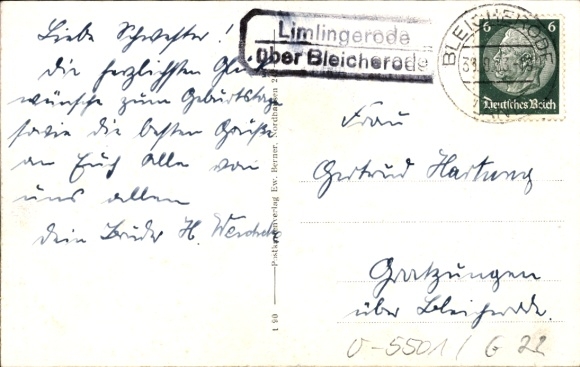 Liebe Schwester!
Die herzlichsten Glü-
wünsche zum Geburtstag
sowie die besten Grüße
an Euch alle von
uns allen
Dein Bruder H.
Limlingerode
über Bleicherode
BLEICHERODE
6 6
Deutsches Reich
Postkartenverlag Ew. Berner, Nordhausen
1 90
Frau
Gertrud Hartung
Gratzungen
über Bleicherode.
O-5501 / G 22